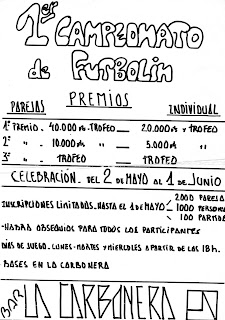 1er CAMPEONATO
de FUTBOLIN
PREMIOS
PAREJAS INDIVIDUAL
1º PREMIO - 40.000 pts + TROFEO — 20.000 pts + TROFEO
2º " - 10.000 pts " — 5.000 pts "
3º " TROFEO — TROFEO
CELEBRACIÓN. DEL 2 DE MAYO AL 1 DE JUNIO
INSCRIPCIONES LIMITADAS. HASTA EL 1 DE MAYO - 2000 PAREJA
1000 PERSONA
100 PARTIDA
- HABRA OBSEQUIOS PARA TODOS LOS PARTICIPANTES
DIAS DE JUEGO. LUNES - MARTES Y MIERCOLES A PARTIR DE LAS 18 H.
- BASES EN LA CARBONERA
BAR LA CARBONERA